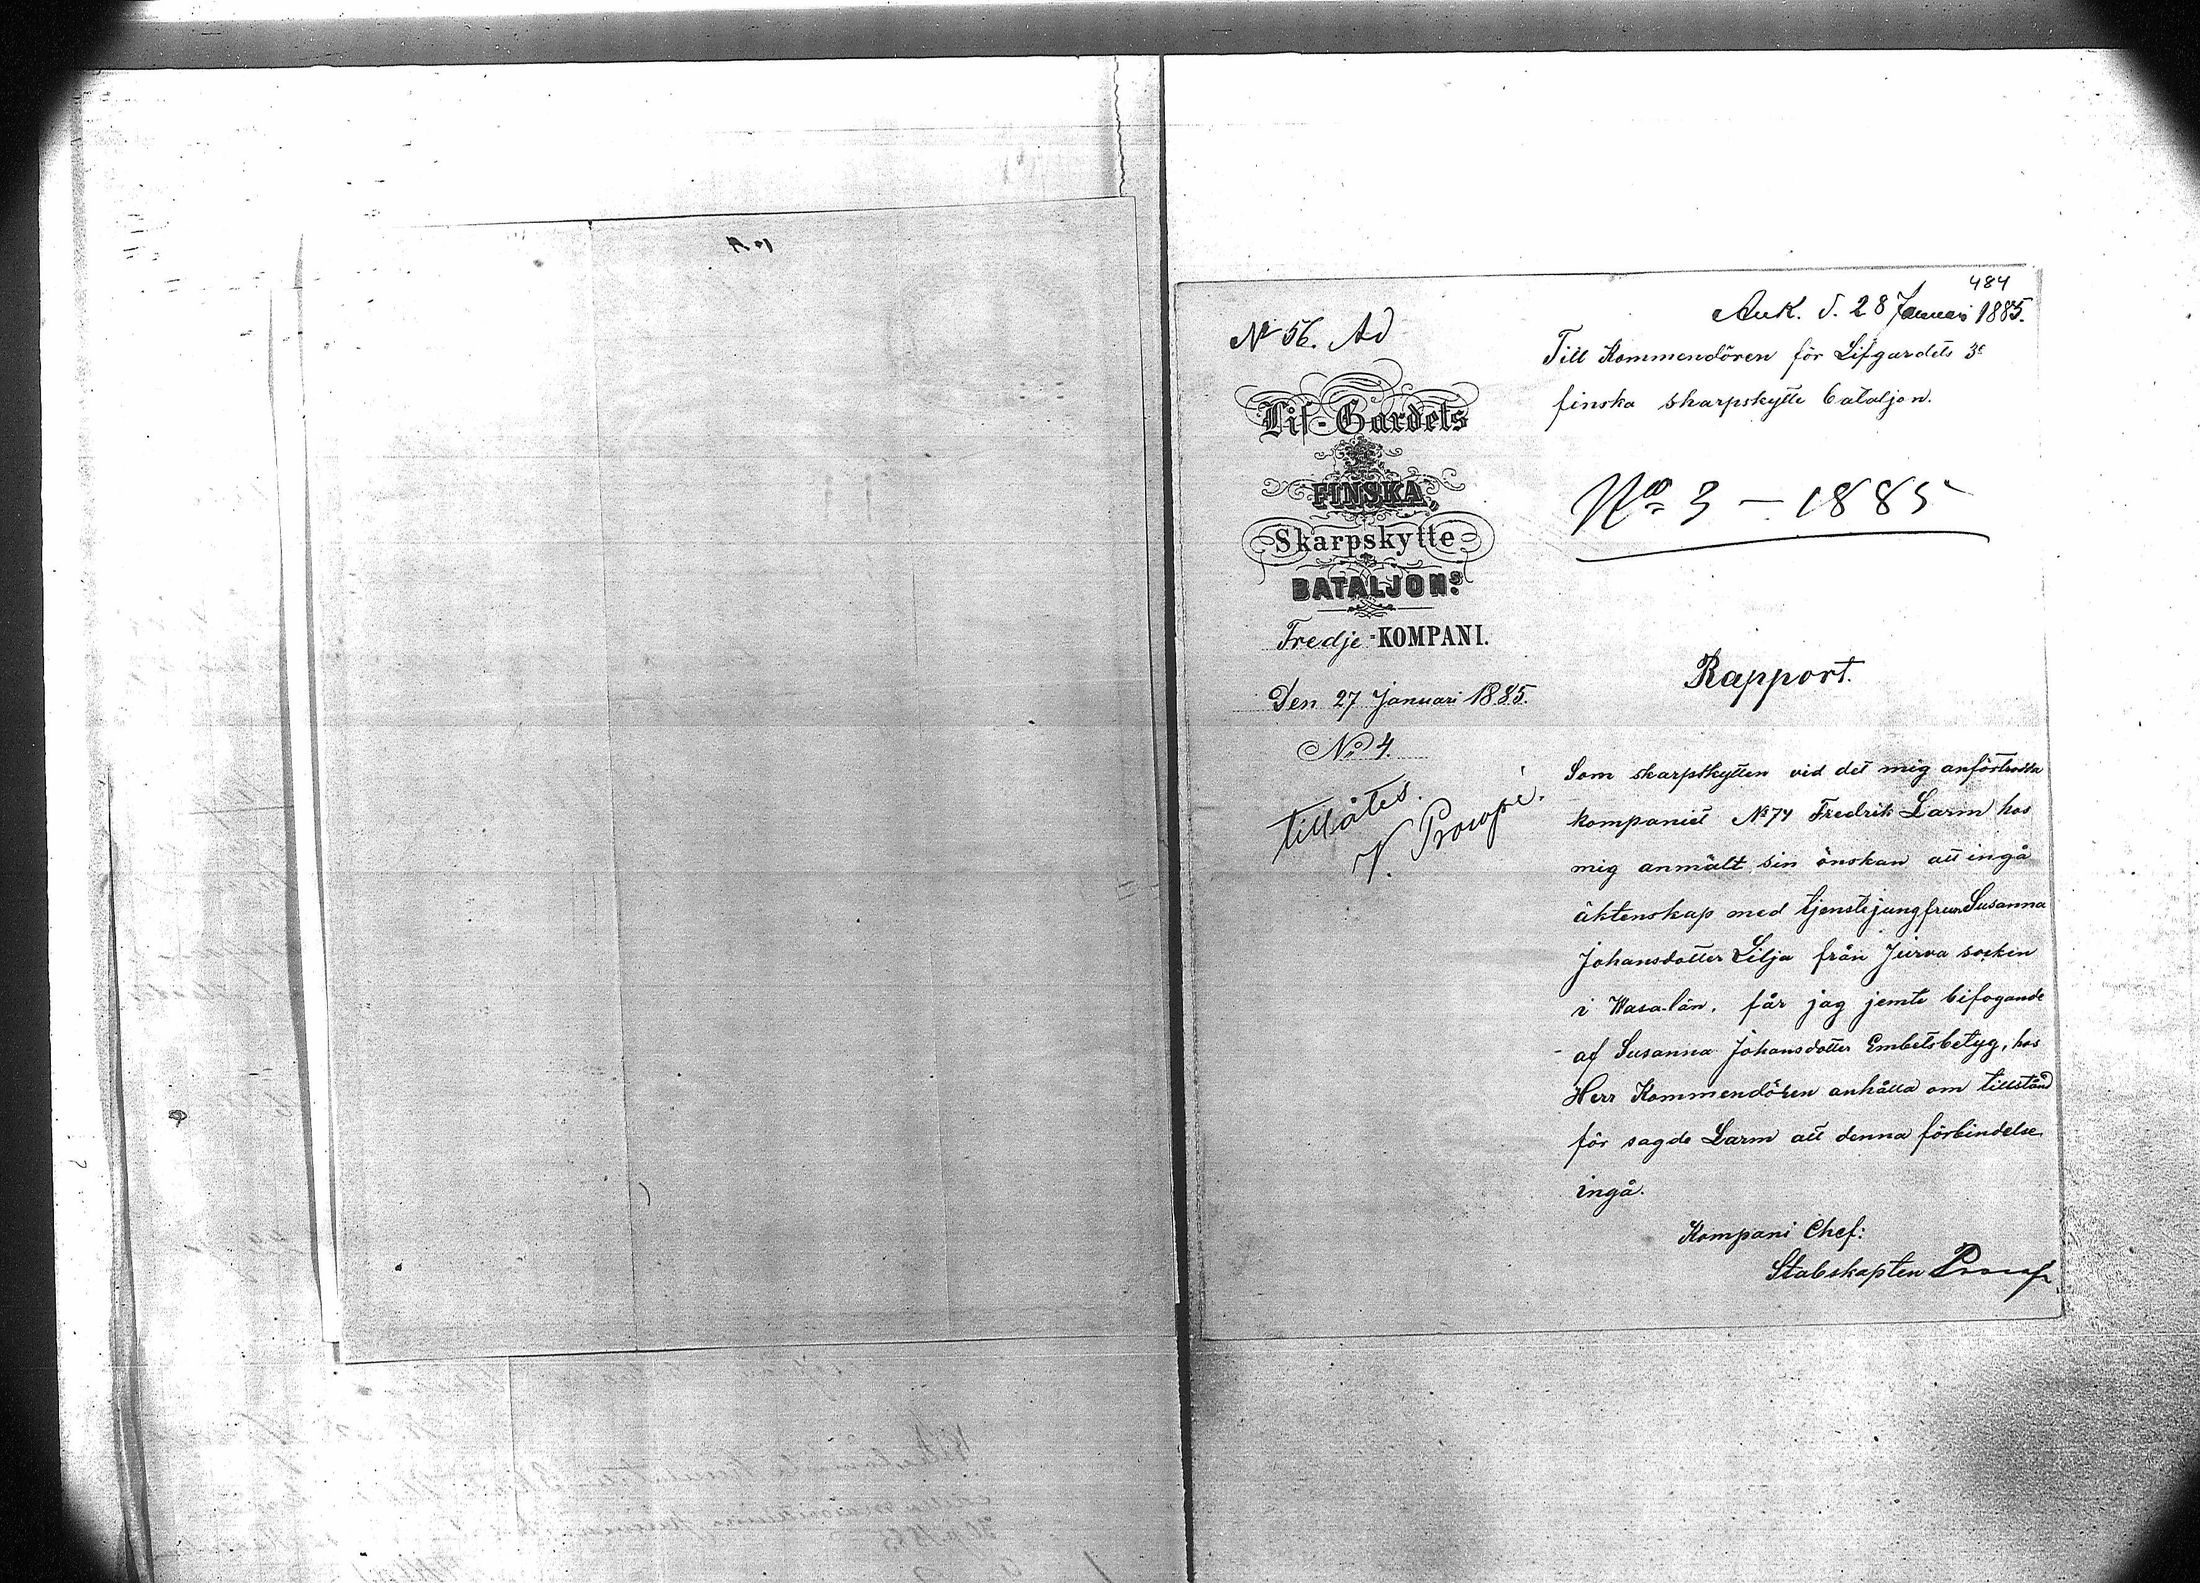 484
Ank. d. 28 Januari 1885.
No 56. Ad
Till Kommendören för Lifgardets 3e
finska skarpskytte bataljon.
Lif-Gardets
FINSKA,
Skarpskytte
BATALJONS
Tredje-KOMPANI.
Den 27 Januari 1885.
No 4.
tillåtes.
V. Procopé.
No 3 – 1885
Rapport.
Som skarpskytten vid det mig anförtrodda
kompaniet No 74 Fredrik Larm hos
mig anmält sin önskan att ingå
äktenskap med tjenstejungfrun Susanna
Johansdotter Lilja från Jurva socken
i Wasa län, får jag jemte bifogande
af Susanna Johansdotter Embetsbetyg, hos
Herr Kommendören anhålla om tillstånd
för sagde Larm att denna förbindelse
ingå.
Kompani Chef:
Stabskapten